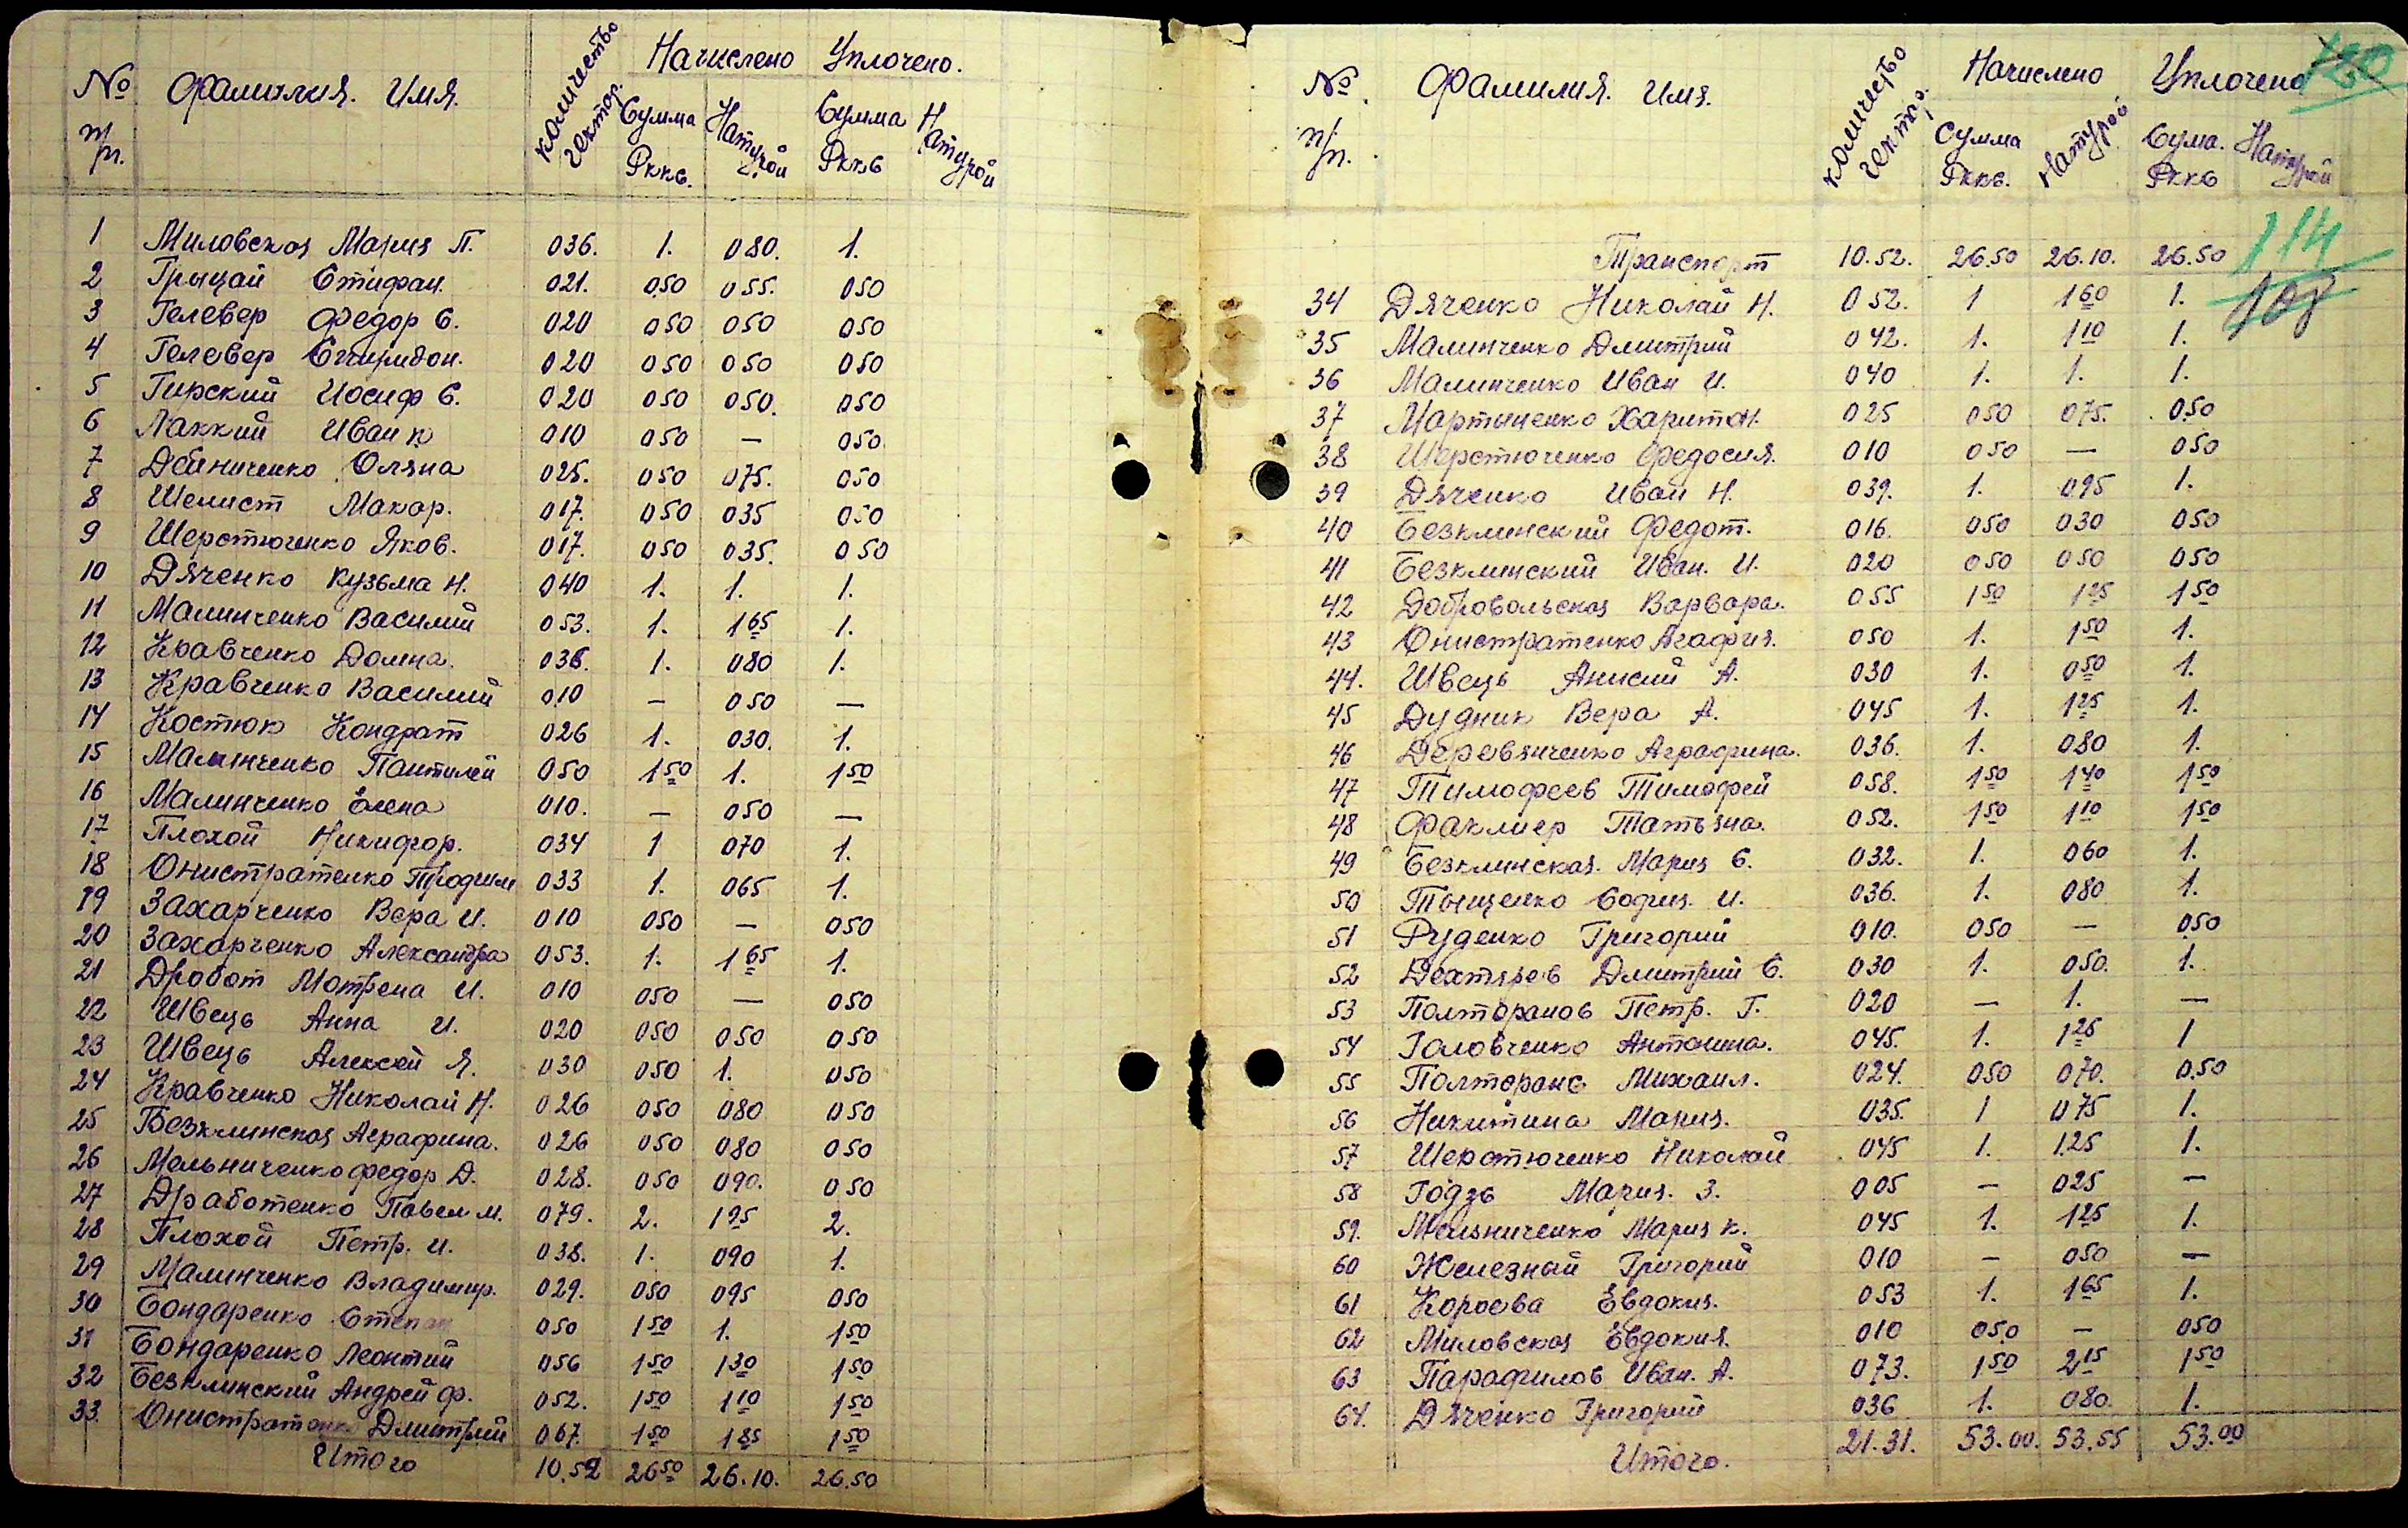 № п/п. Фамилия. Имя. Количество гектар. Начислено Уплочено.
Сумма Ркка. Натурой Сумма Ркка Натурой
1 Миловская Мария П. 036. 1. 080. 1.
2 Грыцай Стифан. 021. 050 055. 050
3 Гелевер Федор С. 020 050 050 050
4 Гелевер Спиридон. 020 050 050 050
5 Гирский Иосиф С. 020 050 050. 050
6 Лаккий Иван К 010 050 — 050
7 Оляна 025. 050 075. 050
8 Шелист Макар. 017. 050 035 050
9 Шерстюченко Яков. 017. 050 035. 050
10 Дяченко Кузьма Н. 040 1. 1. 1.
11 Малинченко Василий 053. 1. 165 1.
12 Кравченко Домна. 036. 1. 080 1.
13 Кравченко Василий 010 — 050 —
14 Костюк Кондрат 026 1. 030. 1.
15 Малинченко Пантилей 050 150 1. 150
16 Малинченко Елена 010. — 050 —
17. Плохой Никифор. 034 1 070 1.
18 Онистратенко Трофим 033 1. 065 1.
19 Захарченко Вера И. 010 050 — 050
20 Захарченко Александра 053. 1. 165 1.
21 Дробот Мотрена И. 010 050 — 050
22 Швець Анна И. 020 050 050 050
23 Швець Алексей Я. 030 050 1. 050
24 Кравченко Николай Н. 026 050 080 050
25 Безклинская Аграфина. 026 050 080 050
26 Мельниченко Федор Д. 028. 050 090. 050
27 Дработенко Павел М. 079. 2. 195 2.
28 Плохой Петр. И. 038. 1. 090 1.
29 Малинченко Владимир. 029. 050 095 050
30 Бондаренко Степан 050 150 1. 150
31 Бондаренко Леонтий 056 150 130 150
32 Безклинский Андрей Ф. 052. 150 110 150
33. Онистратенко Дмитрий 067. 150 185 150
Итого 10.52 2650 26.10. 26.50
№ п/п. Фамилия. Имя. Количество гектар. Начислено Уплочено
Сумма Ркка. Натурой Сума. Ркка Натурой
Транспорт 10.52. 26.50 26.10. 26.50 114
34 Дяченко Николай Н. 052. 1 160 1. 108
35 Малинченко Дмитрий 042. 1. 110 1.
36 Малинченко Иван И. 040 1. 1. 1.
37 Мартыненко Харитон. 025 050 075. 050
38 Шерстюченко Федосия. 010 050 — 050
39 Дяченко Иван Н. 039. 1. 095 1.
40 Безклинский Федот. 016. 050 030 050
41 Безклинский Иван. И. 020 050 050 050
42 Добровольская Варвара. 055 150 125 150
43 Онистратенко Агафия. 050 1. 150 1.
44. Швець Анисий А. 030 1. 050 1.
45 Дудник Вера А. 045 1. 125 1.
46 Деревянченко Аграфина. 036. 1. 080 1.
47 Тимофеев Тимофей 058. 150 140 150
48 Факлиер Татьяна. 052. 150 110 150
49 Безклинская. Мария С. 032. 1. 060 1.
50 Тыщенко София. И. 036. 1. 080 1.
51 Руденко Григорий 010. 050 — 050
52 Дехтярев Дмитрий С. 030 1. 050. 1.
53 Полторанов Петр. Г. 020 — 1. —
54 Головченко Антонина. 045. 1. 125 1
55 Михаил. 024. 050 070. 050
56 Никитина Мария. 035. 1 075 1.
57 Шерстюченко Николай 045 1. 125 1.
58 Годзь Мария. З. 005 — 025 —
59. Мельниченко Мария К. 045 1. 125 1.
60 Железный Григорий 010 — 050 —
61 Евдокия. 053 1. 165 1.
62 Миловская Евдокия. 010 050 — 050
63 Парафилов Иван. А. 073. 150 215 150
64. Дяченко Григорий 036 1. 080. 1.
Итого. 21.31. 53.00. 53.55 53.00